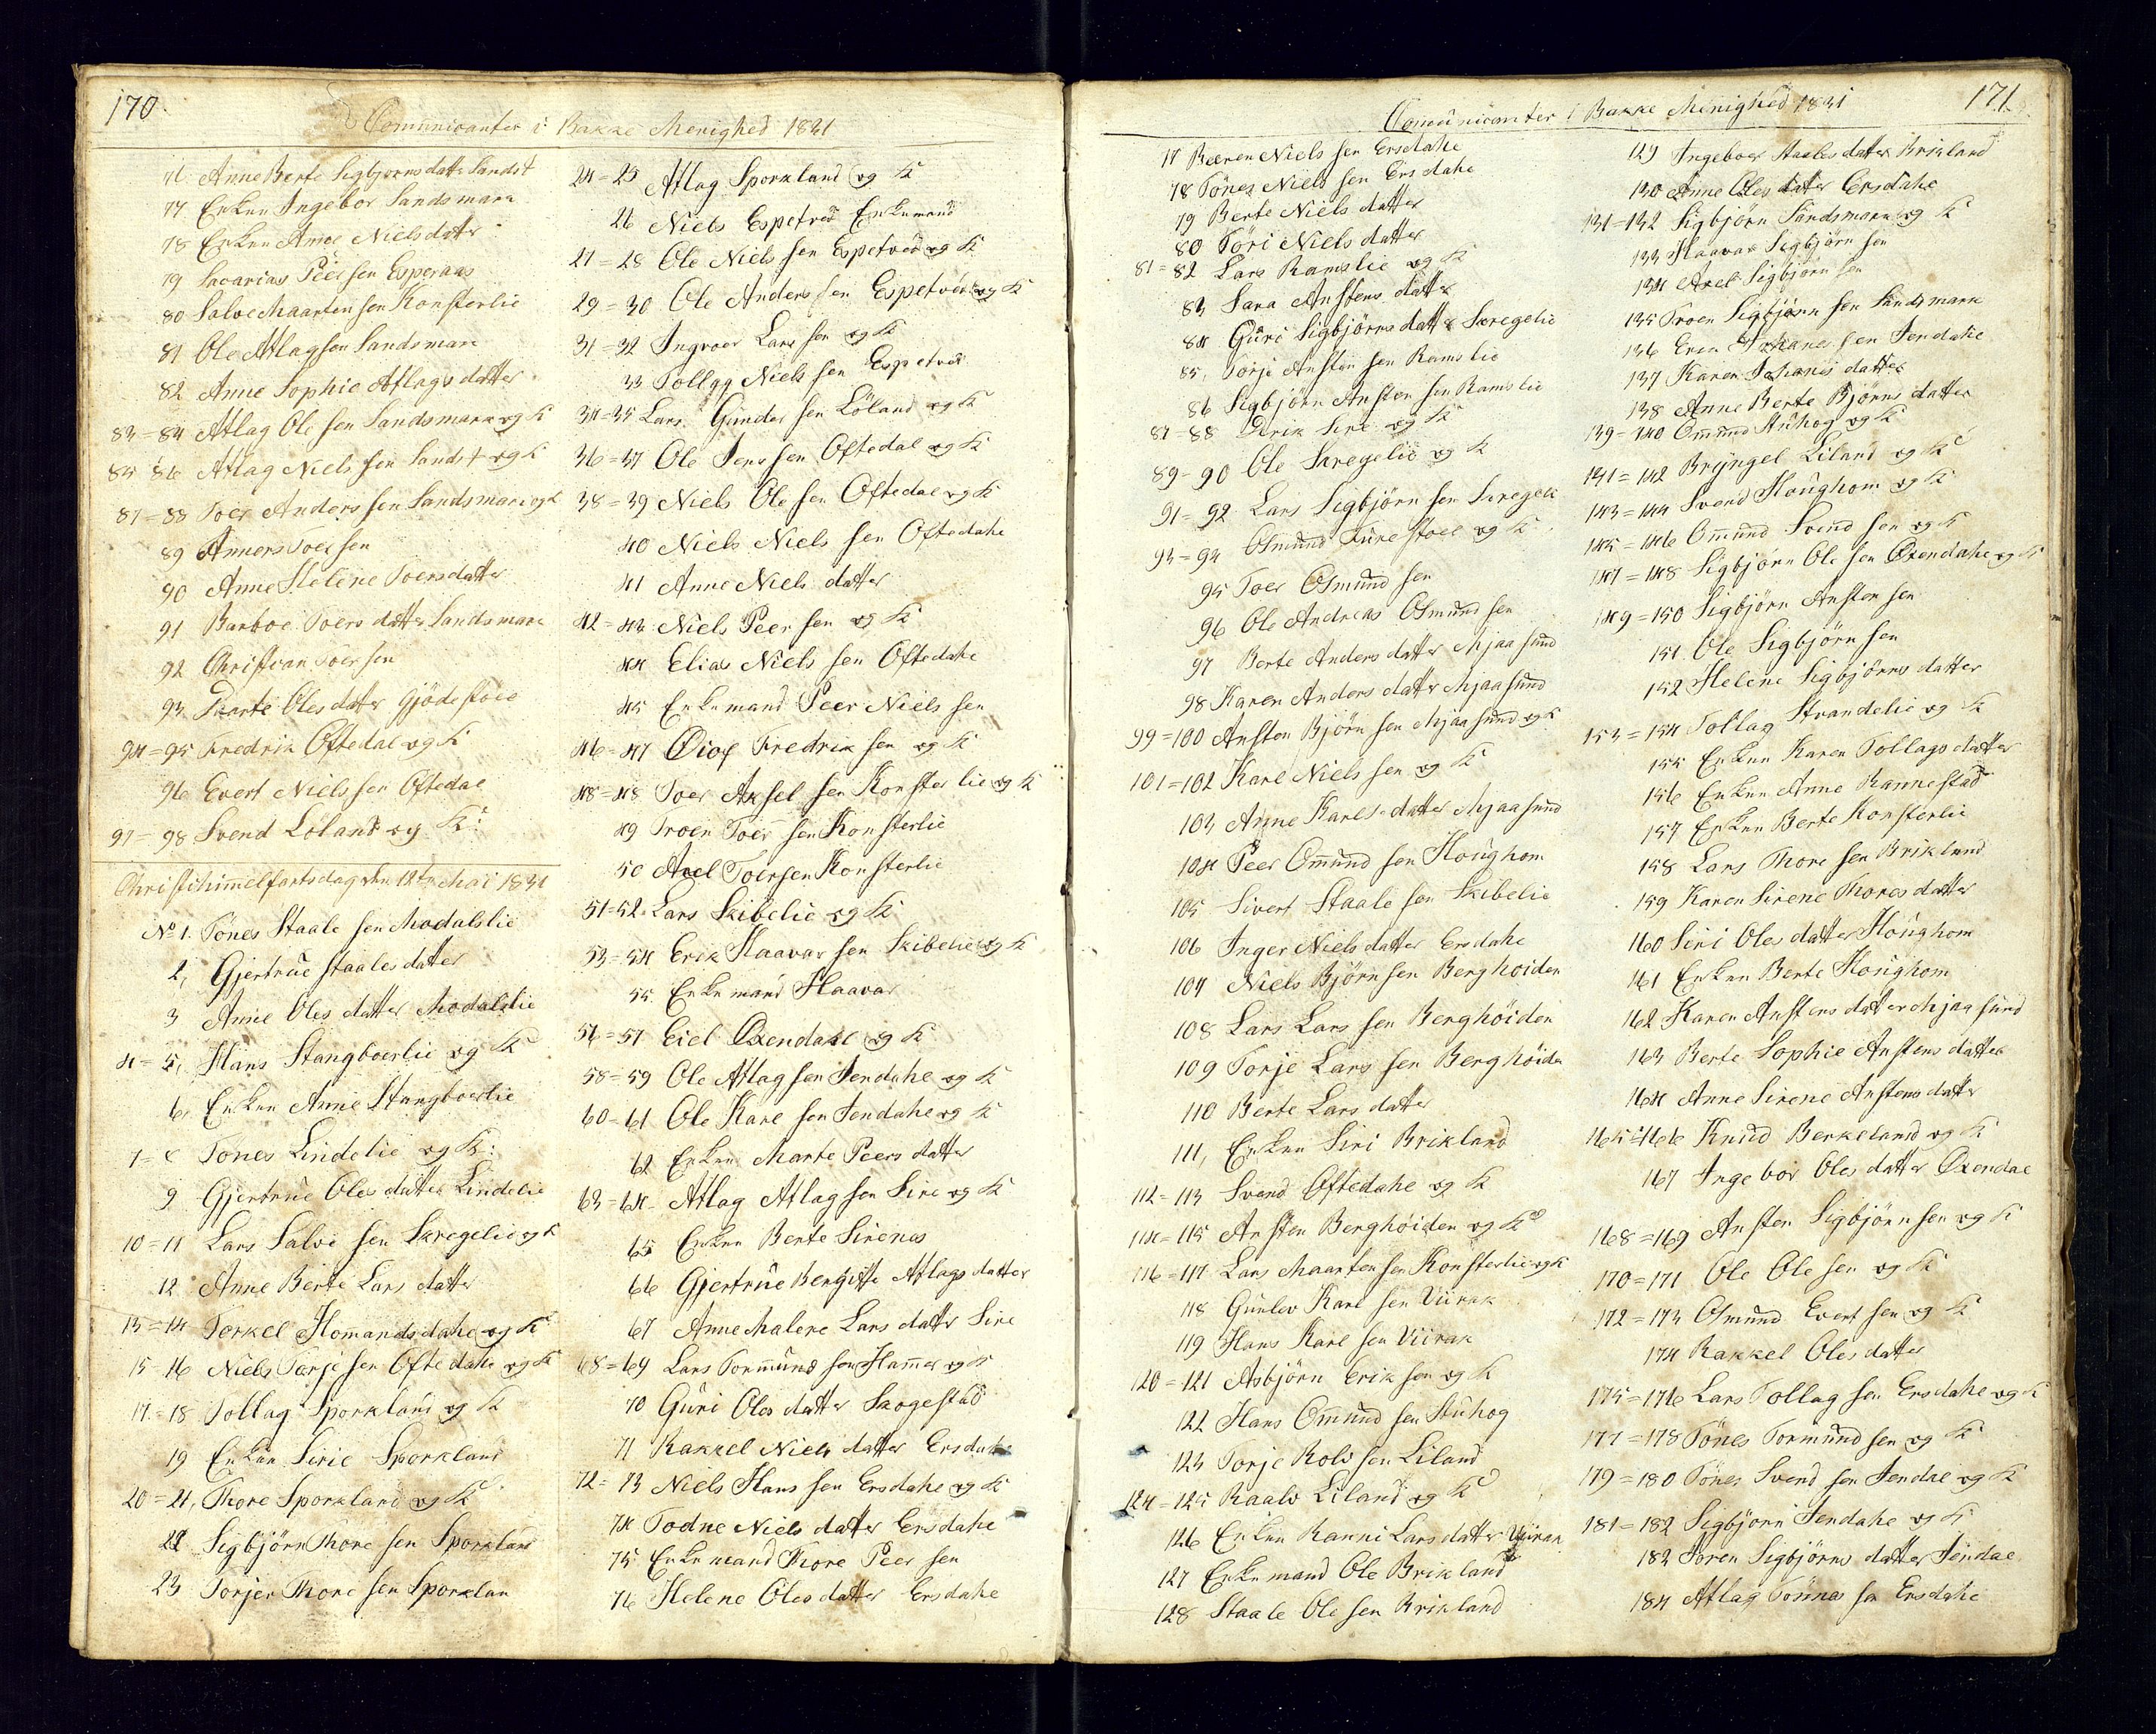 170.
Comunicanter i Bakke Menighed 1831
76 Anne Berte Sigbjørnsdatter Sandst
77 Enken Ingebor Sandsmark
78 Enken Anne Nielsdatter
79 Sacarias Peersen Esperaas
80 Salve Maartensen Konsterlie
81 Ole Atlagsen Sandsmark
82 Anne Sophie Atlagsdatter
83=84 Atlag Olesen Sandsmark og K
85=86 Atlag Nielssen Sandst og K
87=88 Toer Anderssen Sandsmark og K
89 Anners Toersen
90 Anne Helene Toersdatter
91 Barboe Toersdatter Sandsmark
92 Christian Toersen
93 Marte Olesdatter Gjødestoel
94=95 Fredrik Oftedal og K
96 Evert Nielssen Oftedal
97=98 Svend Løland og K:
Christihimelfartsdag den 12te Mai 1831
No 1. Tønes Staalesen Modalslie
2, Gjertrue Staalesdatter
3 Anne Olesdatter Modalslie
4=5, Hans Stangboerlie og K
6, Enken Anne Stangboerlie
7=8 Tønes Lindelie og K:
9 Gjertrue Olesdatter Lindelie
10=11 Lars Salvesen Skregelie og K
12 Anne Berte Larsdatter
13=14 Terkel Homandsdahe og K
15=16 Niels Torjesen Oftedahe og K
17=18 Tollag Sporkland og K
19 Enken Sirie Sporkland
20=21, Thore Sporkland og K
22 Sigbjørn Thoresen Sporkland
23 Torjer Thoresen Sporklan
24=25 Atlag Sporkland og K
26 Niels Espetved Enkemand
27=28 Ole Nielssen Espetved og K
29=30 Ole Anderssen Espetved og K
31=32 Ingvoer Larssen og K
33 Tollag Nielssen Espetved
34=35 Lars Gundersen Løland og K
36=37 Ole Jenssen Oftedal og K
38=39 Niels Olesen Oftedal og K
40 Niels Nielssen Oftedahe
41 Anne Nielsdatter
42=43 Niels Peersen og K
44 Elias Nielssen Oftedahe
45 Enkemand Peer Nielssen
46=47 Diof Fredriksen og K
48=48 Toer Akselsen Konsterlie og K
49 Troen Toersen Konsterlie
50 Axel Toersen Konsterlie
51=52. Lars Skibelie og K
53=54 Erik Haavarsen Skibelie og K
55. Enkemand Haavar
56=57 Eiel Oxendahl og K
58=59 Ole Atlagsen Jendahe og K
60=61 Ole Karesen Jendahe og K
62 Enken Marte Peersdatter
63=64 Atlag Atlagsen Sire og K
65 Enken Berte Sirenes
66 Gjertrue Bergitte Atlagsdatter
67 Anne Malene Larsdatter Sire
68=69 Lars Tormundsen Hamer og K
70 Guri Olesdatter Skogestad
71 Rakkel Nielsdatter Ersdahe
72=73 Niels Hanssen Ersdahe og K
74 Todne Nielsdatter Ersdahe
75 Enkemand Thore Peersen
76 Helene Olesdatter Ersdahe
171
Comunicanter i Bakke Menighed 1831
77 Reeren Nielssen Ersdahe
78 Tønes Nielssen Ersdahe
79 Berte Nielsdatter
80 Tøri Nielsdatter
81=82 Lars Ramslie og K
83 Sara Anstensdatter
84 Guri Sigbjørnsdatter Skregelie
85, Torje Anstensen Ramslie
86 Sigbjørn Anstensen Ramslie
87=88 Erik Sire og K
89=90 Ole Skregelie og K
91=92 Lars Sigbjørnsen Skregeli
93=94 Osmund Furestoel og K
95 Toer Osmundsen
96 Ole Andreas Osmundsen
97 Berte Andersdatter Mjaasund
98 Karen Andersdatter Mjaasund
99=100 Ansten Bjørnsen Mjaasund og K
101=102 Karl Nielssen og K
103 Anne Karlsdatter Mjaasund
104 Peer Omundsen Houghom
105 Sivert Staalesen Skibelie
106 Inger Nielsdatter Ersdahe
107 Niels Bjørnsen Berghøiden
108 Lars Larssen Berghøiden
109 Torje Larssen Berghøiden
110 Berte Larsdatter
111, Enken Siri Brikland
112=113 Svend Oftedahe og K
114=115 Ansten Berghøiden og K
116=117 Lars Maartensen Konsterlie og K
118 Gunlev Karlsen Viirak
119 Hans Karlsen Viirak
120=121 Asbjørn Eriksen og K
122 Hans Omundsen Stuhog
123 Torje Rolvsen Liland
124=125 Raalv Liland og K
126 Enken Ranni Larsdatter Viirak
127 Enkemand Ole Brikland
128 Staale Olesen Brikland
129 Ingeboer Staalesdatter Brikland
130 Anne Olesdatter Ersdahe
131=132 Sigbjørn Sandsmark og K
133 Haavar Sigbjørnsen
134 Axel Sigbjørnsen
135 Troen Sigbjørnsen Sandsmark
136 Even Johanessen Jendahe
137 Karen Johanesdatter
138 Anne Berte Bjørnsdatter
139=140 Omund Stuhog og K
141=142 Bryngel Liland og K
143=144 Svend Houghom og K
145=146 Omund Svendsen og K
147=148 Sigbjørn Olesen Oxendahe og K
149=150 Sigbjørn Anstensen
151. Ole Sigbjørnsen
152 Helene Sigbjørnsdatter
153=154 Tollag Strandelie og K
155 Enken Karen Tollagsdatter
156 Enken Anne Rannestad
157 Enken Berte Konsterlie
158 Lars Thoresen Brikland
159 Karen Sirene Thoresdatter
160 Siri Olesdatter Houghom
161 Enken Berte Houghom
162 Karen Anstensdatter Mjaasund
163 Berte Sophie Anstensdatter
164 Anne Sirene Anstensdatter
165=166 Knud Berkeland og K
167 Ingebor Olesdatter Oxendal
168=169 Ansten Sigbjørnsen og K
170=171 Ole Olesen og K
172=173 Osmund Evertsen og K
174 Rakkel Olesdatter
175=176 Lars Tollagsen Ersdahe og K
177=178 Tønes Tormundsen og K
179=180 Tønes Svendsen Jendal og K
181=182 Sigbjørn Jendahe og K
183 Joren Sigbjørnsdatter Jendal
184 Atlag Tønnessen Ersdahe